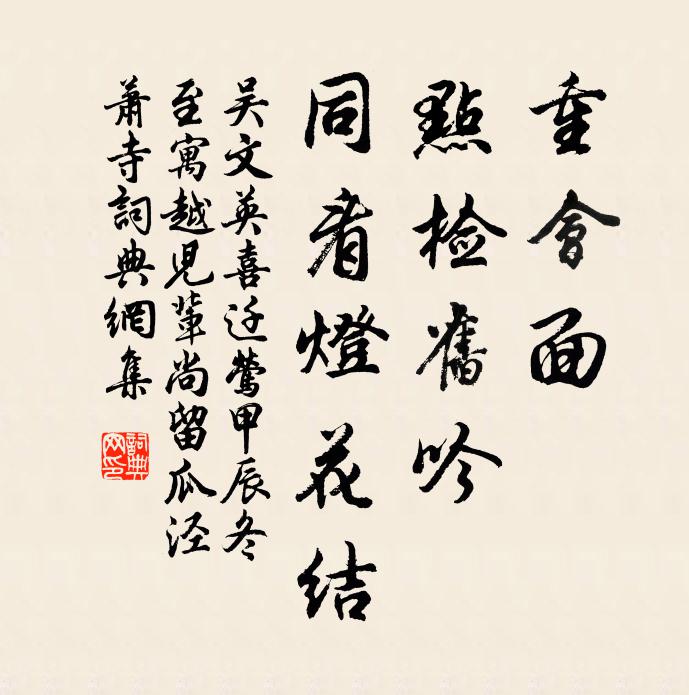 重會面
點檢舊吟
同看燈花結
吴文英喜迁鶯甲辰冬
至寓越兒輩尚留瓜泾
蕭寺詞典網集
詞典网印